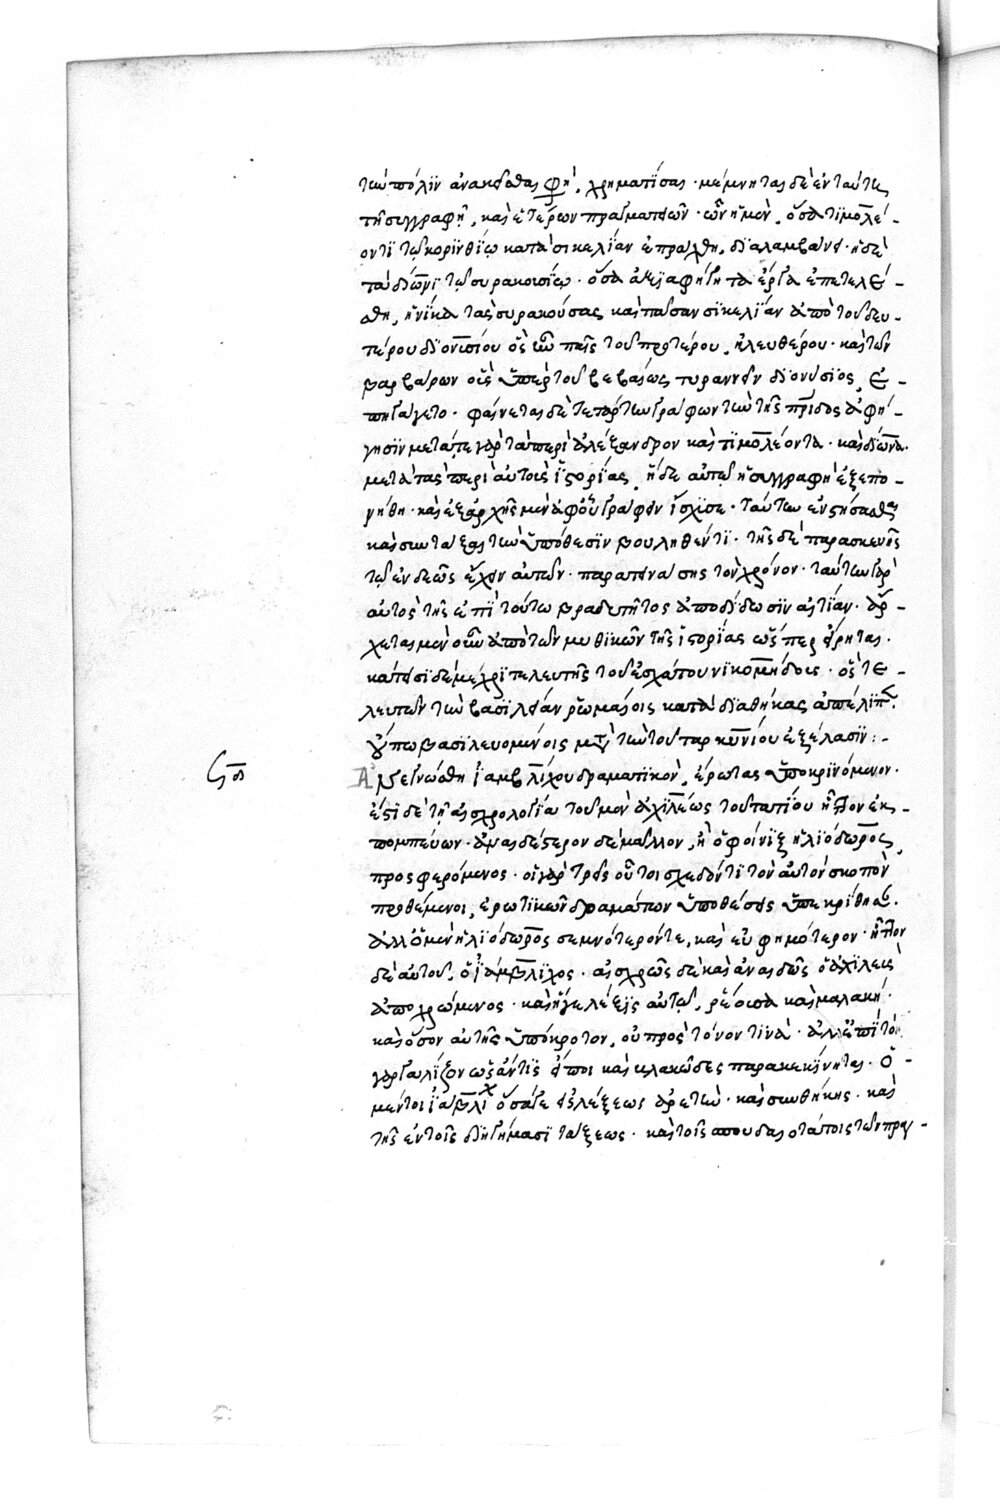 τὴν πόλιν ἀνακεῖσθαι φησὶ, χρηματίσας· μέμνηται δὲ ἐν ταύτῃ
τῇ συγγραφῇ, καὶ ἑτέρων πραγματειῶν· ὧν ἡ μὲν, ὅσα τιμολέ-
οντι τῷ κορινθίῳ κατὰ σικελίαν ἐπράχθη, διαλαμβάνει· ἡ δὲ
τὰ δίωνι τῷ συρακουσίῳ· ὅσα ἀξιαφήγητα ἔργα ἐπετελέ-
σθη, ἡνίκα τὰς συρακούσας καὶ πᾶσαν σικελίαν ἀπὸ τοῦ δευ-
τέρου διονυσίου ὃς ἦν παῖς τοῦ προτέρου, ἠλευθέρου· καὶ τῶν
βαρβάρων οὓς ὑπὲρ τοῦ βεβαίως τυραννεῖν διονύσιος, ἐ-
πηγάγετο· φαίνεται δὲ τετάρτην γράφων τὴν τῆς πατρίδος ἀφή-
γησιν μετά γε γὰρ τὰ περὶ ἀλέξανδρον καὶ τιμολέοντα· καὶ δίωνα
μετὰ τὰς περὶ αὐτοὺς ἱστορίας, ἥδε αὐτῷ ἡ συγγραφὴ ἐξεπο-
νήθη· καὶ ἐξ ἀρχῆς μὲν ἀφ' οὗ γράφειν ἴσχυσε· ταύτην ἐνστήσασθαι
καὶ συντάξαι τὴν ὑπόθεσιν βουληθέντι· τῆς δὲ παρασκευῆς
τῷ ἐνδεῶς ἔχειν αὐτῶν· παρατείνασης τὸν χρόνον· ταύτην γὰρ
αὐτὸς τῆς ἐπὶ τούτῳ βραδυτῆτος ἀποδίδωσιν αἰτίαν· ἄρ-
χεται μὲν οὖν ἀπὸ τῶν μυθικῶν τῆς ἱστορίας ὥσπερ εἴρηται·
κάτεισι δὲ μέχρι τελευτῆς τοῦ ἐσχάτου νικομήδους· ὃς τε-
λευτῶν τὴν βασιλείαν ῥωμαίοις κατὰ διαθήκας ἀπέλιπεν
οὔπω βασιλευομένοις μετὰ τὴν τοῦ ταρκυνίου ἐξέλασιν:-
Ἀνεγνώσθη ἰαμβλίχου δραματικὸν, ἔρωτας ὑποκρινόμενον·
ἔστι δὲ τῇ αἰσχρολογίᾳ τοῦ μὲν ἀχιλλέως τοῦ τατίου ἧττον ἐκ-
πομπεύων· ἀναιδέστερον δὲ μᾶλλον, ἢ ὁ φοίνιξ ἡλιόδωρος,
προσφερόμενος· οἱ γὰρ τρεῖς οὗτοι σχεδόν τι τὸν αὐτὸν σκοπὸν
προθέμενοι, ἐρωτικῶν δραμάτων ὑποθέσεις ὑπεκρίθησαν.
ἀλλ' ὁ μὲν ἡλιόδωρος σεμνότερόν τε, καὶ εὐφημότερον· ἧττον
δὲ αὐτοῦ, ὁ ἰάμβλιχος· αἰσχρῶς δὲ καὶ ἀναιδῶς ὁ ἀχιλεὺς
ἀποχρώμενος· καὶ ἥ γε λέξις αὐτῷ, ῥέουσα καὶ μαλακή·
καὶ ὅσον αὐτῆς ὑπόκροτον, οὐ πρὸς τόνον τινὰ· ἀλλ' ἐπὶ τὸ
γαργαλίζον ὡς ἄν τις εἴποι καὶ βλακῶδες παρακεκίνηται· ὁ
μέντοι ἰάμβλιχος ὅσα γε εἰς λέξεως ἀρετὴν· καὶ συνθήκης· καὶ
τῆς ἐν τοῖς διηγήμασι τάξεως· καὶ τοῖς σπουδαιοτάτοις τῶν πραγ-